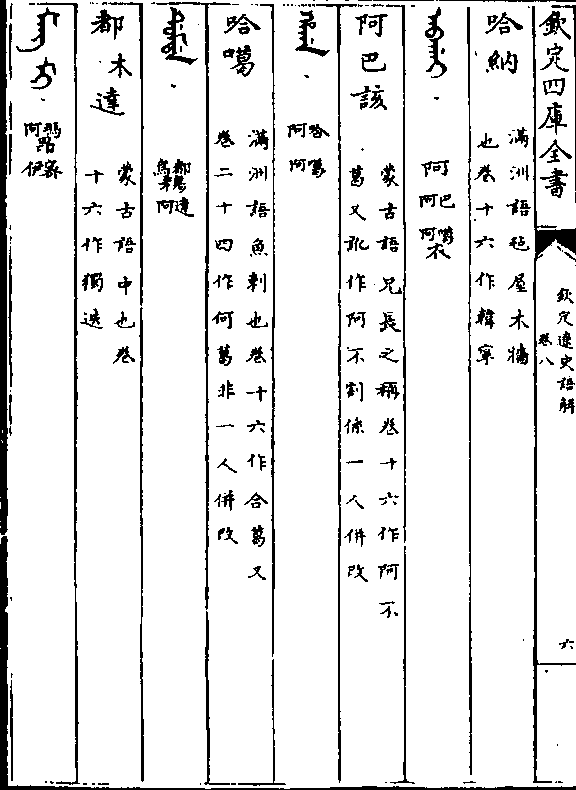 欽定四庫全書
欽定遼史語解
卷八
六
哈納
滿洲語毡屋木牆
也卷十六作韓寧
阿 巴阿 噶阿衣
阿巴該
蒙古語兄長之稱卷十六作阿不
葛又訛作阿不割係一人併改
哈阿 噶阿
哈噶
滿洲語魚刺也卷十六作合葛又
卷二十四作何葛非一人併改
都烏 達阿
都木達
蒙古語中也卷
十六作獨迭
瑪阿